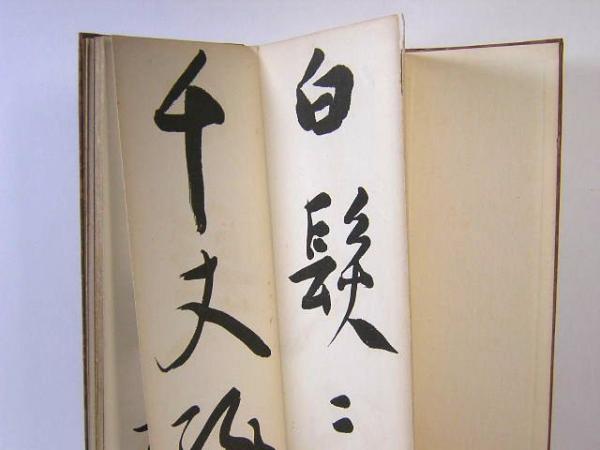 白髮三
千丈